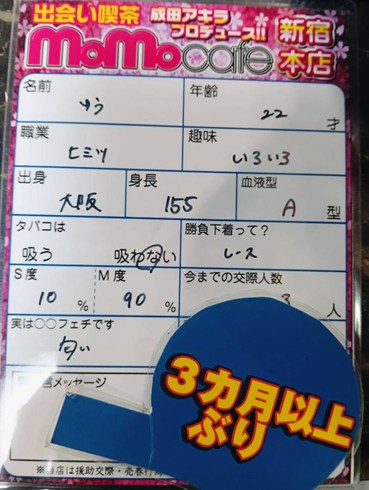 出会い喫茶 成田アキラ プロデュース!! 新宿本店
MoMocafe
名前 ゆう 年齢 22 才
職業 ヒミツ 趣味 いろいろ
出身 大阪 身長 155 血液型 A 型
タバコは 吸う 吸わない 勝負下着って? レース
S度 10 % M度 90 % 今までの交際人数 3 人
実は○○フェチです 匂い
メッセージ
3カ月以上
ぶり
店は援助交際・売春行